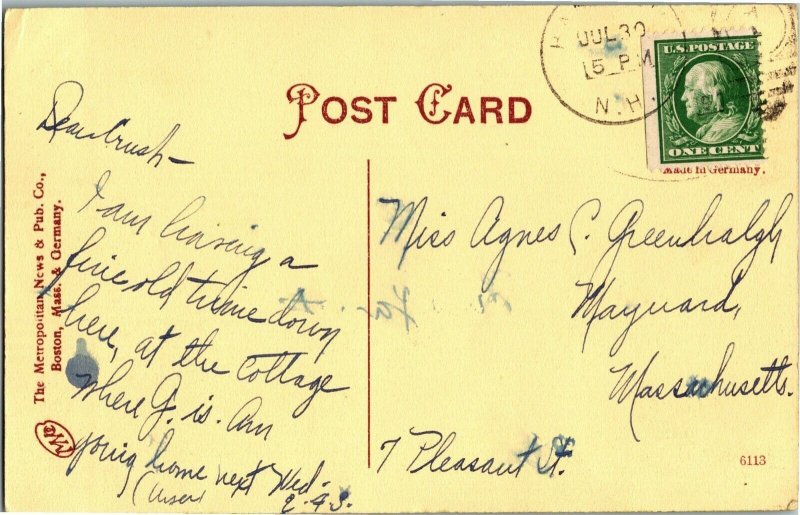 JUL 30
5 P.M
N.H.
U.S. POSTAGE
ONE CENT
Made in Germany.
POST CARD
The Metropolitan News & Pub. Co.,
Boston, Mass. & Germany.
Dear Crush -
I am having a
fine old time down
here, at the cottage
where G. is. Am
going home next Wed-
Miss Agnes C. Greenhalgh
Maynard,
Massachusetts.
7 Pleasant St.
6113